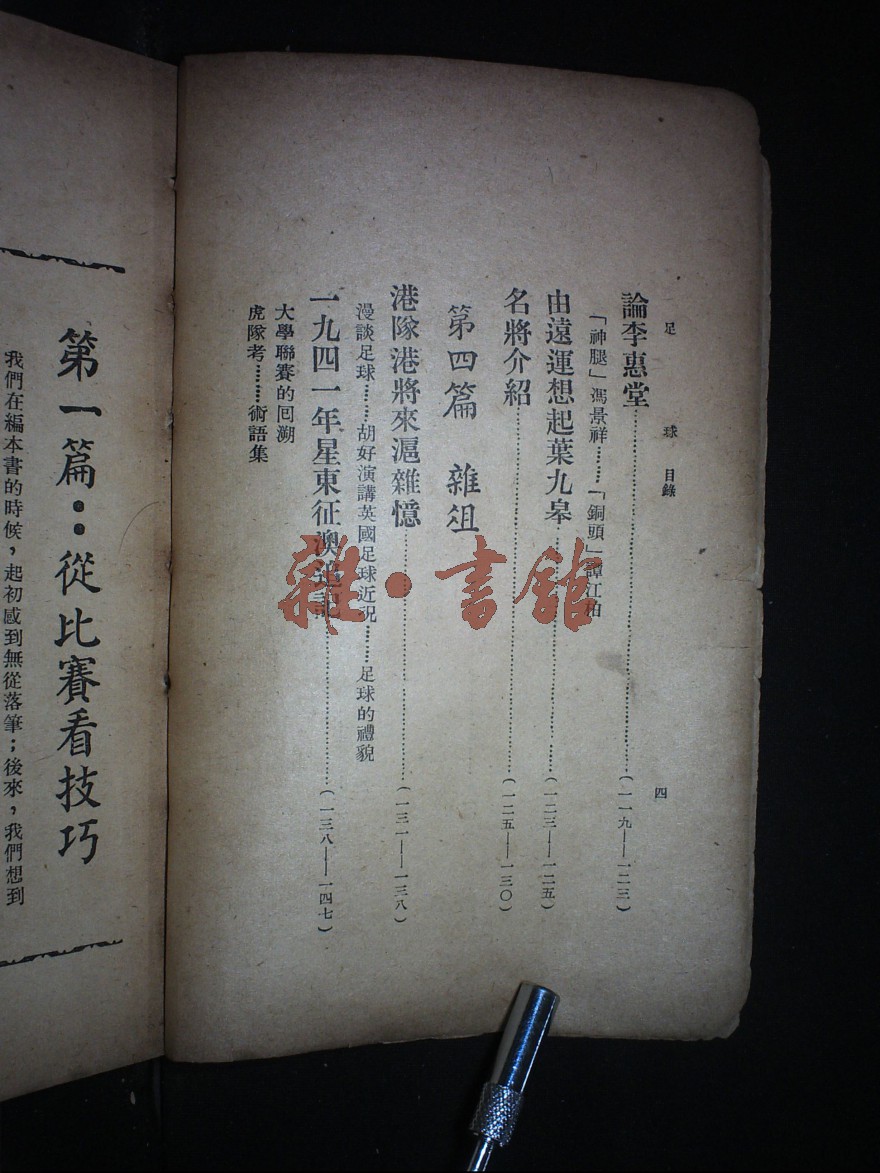 足球 目錄
四
論李惠堂………（一一九——一二三）
「神腿」馮景祥………「銅頭」譚江柏
由遠運想起葉九皋………（一二三——一二五）
名將介紹………（一二五——一三〇）
第四篇 雜俎
港隊港將來滬雜憶………（一三一——一三八）
漫談足球……胡好演講英國足球近況………足球的禮貌
一九四一年星東征澳追記………（一三八——一四七）
大學聯賽的回溯
虎隊考………術語集
第一篇：從比賽看技巧
我們在編本書的時候，起初感到無從落筆；後來，我們想到
雜·書館